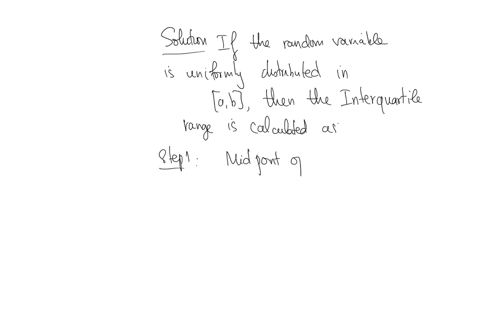 Solution If the random variable
is uniformly distributed in
[a,b], then the Interquartile
range is calculated as
Step1: Mid point of